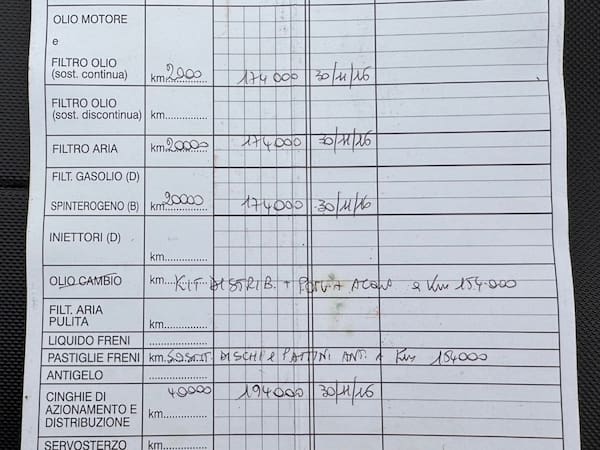 OLIO MOTORE
e
FILTRO OLIO
(sost. continua) km 2000 174000 30/11/16
FILTRO OLIO
(sost. discontinua) km..............
FILTRO ARIA km 20000 174000 30/11/16
FILT. GASOLIO (D)
SPINTEROGENO (B) km 20000 174000 30/11/16
INIETTORI (D)
km..............
OLIO CAMBIO km.... KIT DISTRIB. + POMPA ACQUA a Km 154.000
FILT. ARIA
PULITA km..............
LIQUIDO FRENI ..............
PASTIGLIE FRENI km. SOSTIT. DISCHI e PATTINI ANT. A Km 154000
ANTIGELO ..............
CINGHIE DI 40000 194000 30/11/16
AZIONAMENTO E
DISTRIBUZIONE km..............
SERVOSTERZO km